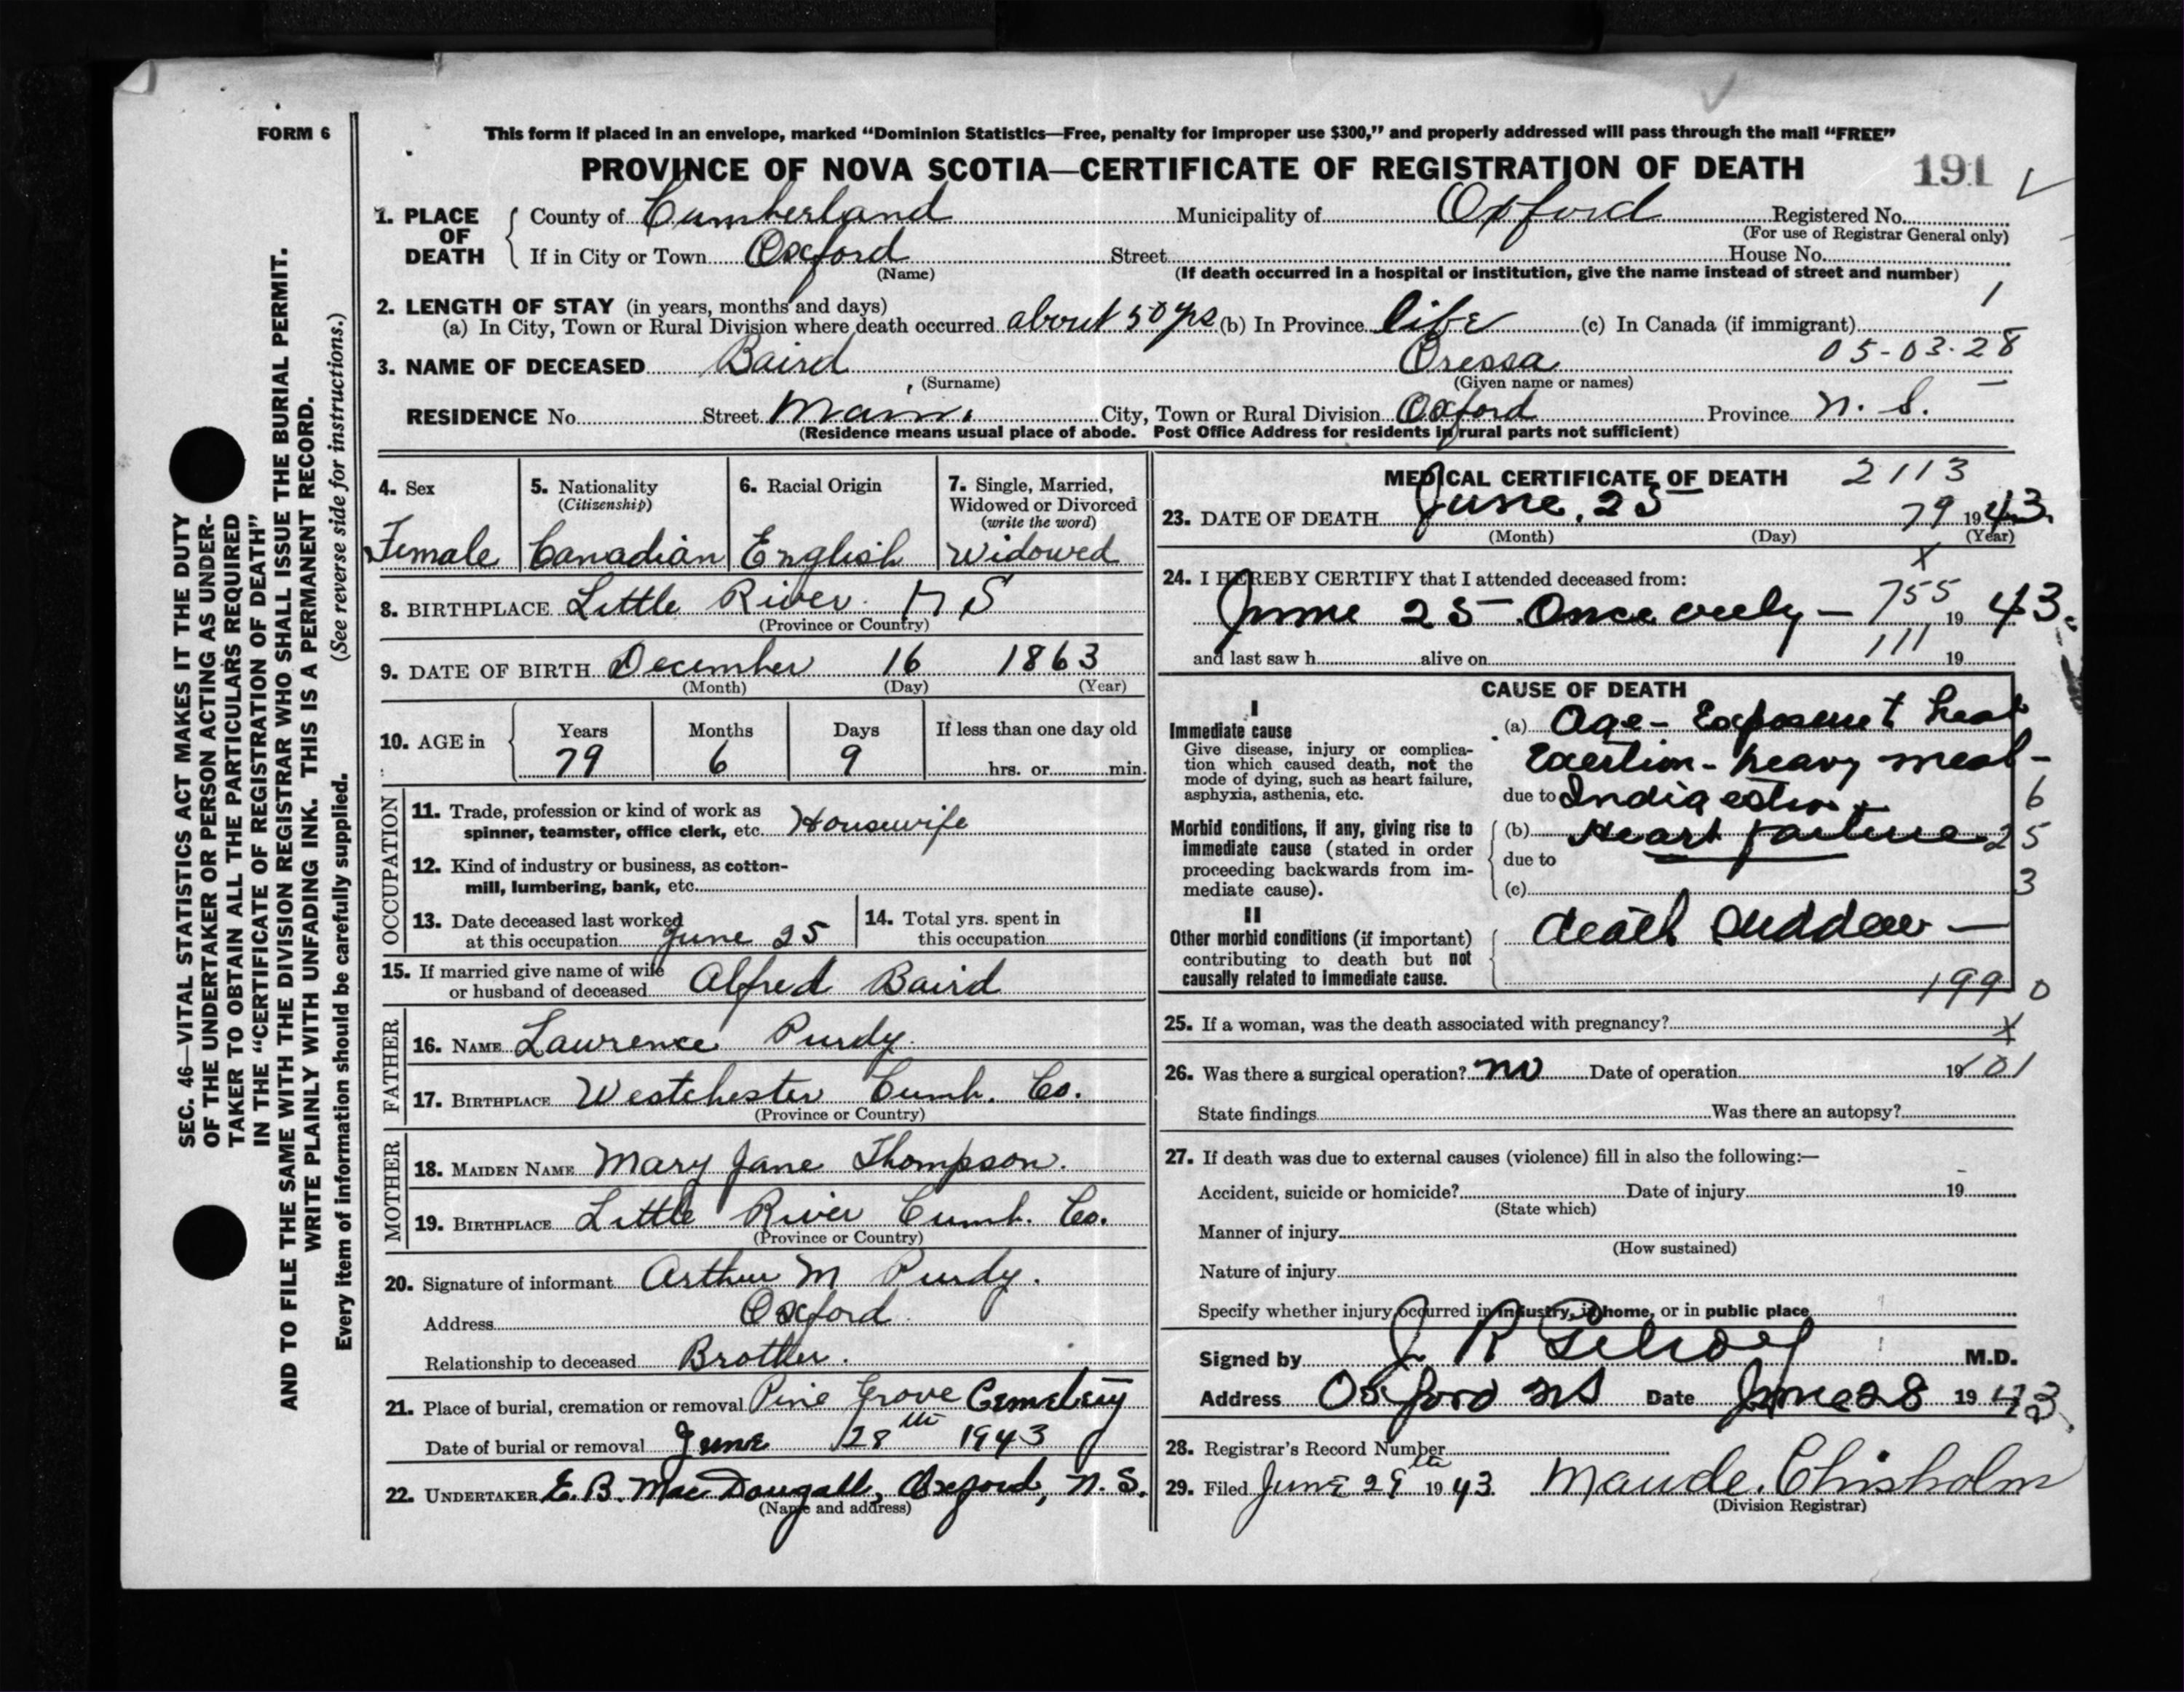 FORM 6
This form if placed in an envelope, marked "Dominion Statistics—Free, penalty for improper use $300," and properly addressed will pass through the mail "FREE"
PROVINCE OF NOVA SCOTIA—CERTIFICATE OF REGISTRATION OF DEATH
191
1. PLACE OF DEATH
County of Cumberland Municipality of Oxford Registered No.
(For use of Registrar General only)
If in City or Town Oxford Street House No.
(Name)
(If death occurred in a hospital or institution, give the name instead of street and number)
1
2. LENGTH OF STAY (in years, months and days)
(a) In City, Town or Rural Division where death occurred about 50 yrs (b) In Province life (c) In Canada (if immigrant)
05-03-28
3. NAME OF DECEASED Baird Oressa
(Surname) (Given name or names)
RESIDENCE No. Street Main. City, Town or Rural Division Oxford Province N. S.
(Residence means usual place of abode. Post Office Address for residents in rural parts not sufficient)
4. Sex
Female
5. Nationality
(Citizenship)
Canadian
6. Racial Origin
English
7. Single, Married,
Widowed or Divorced
(write the word)
Widowed
8. BIRTHPLACE Little River. N S
(Province or Country)
9. DATE OF BIRTH December 16 1863
(Month) (Day) (Year)
10. AGE in
Years Months Days If less than one day old
79 6 9 hrs. or min.
OCCUPATION
11. Trade, profession or kind of work as
spinner, teamster, office clerk, etc. Housewife
12. Kind of industry or business, as cotton-
mill, lumbering, bank, etc.
13. Date deceased last worked
at this occupation June 25
14. Total yrs. spent in
this occupation
15. If married give name of wife
or husband of deceased Alfred Baird
FATHER
16. NAME Lawrence Purdy.
17. BIRTHPLACE Westchester Cumb. Co.
(Province or Country)
MOTHER
18. MAIDEN NAME Mary Jane Thompson.
19. BIRTHPLACE Little River Cumb. Co.
(Province or Country)
20. Signature of informant Arthur M Purdy.
Address Oxford.
Relationship to deceased Brother.
21. Place of burial, cremation or removal Pine Grove Cemetery
Date of burial or removal June 28th 1943
22. UNDERTAKER E. B. MacDougall, Oxford, N. S.
(Name and address)
MEDICAL CERTIFICATE OF DEATH 2113
23. DATE OF DEATH June. 25 79 1943.
(Month) (Day) (Year)
x
24. I HEREBY CERTIFY that I attended deceased from:
June 25 - Once only - 755 19 43.
and last saw h alive on 111 19
CAUSE OF DEATH
I
Immediate cause
Give disease, injury or complica-
tion which caused death, not the
mode of dying, such as heart failure,
asphyxia, asthenia, etc.
(a) Age - Exposure t heat
Exertion - heavy meal -
due to Indigestion + 6
Morbid conditions, if any, giving rise to
immediate cause (stated in order
proceeding backwards from im-
mediate cause).
(b) Heart failure 25
due to
(c) 3
II
Other morbid conditions (if important)
contributing to death but not
causally related to immediate cause.
death sudden —
199 0
25. If a woman, was the death associated with pregnancy? x
26. Was there a surgical operation? no Date of operation 19 101
State findings Was there an autopsy?
27. If death was due to external causes (violence) fill in also the following:—
Accident, suicide or homicide? Date of injury 19
(State which)
Manner of injury
(How sustained)
Nature of injury
Specify whether injury occurred in industry, in home, or in public place
Signed by J R Gilroy M.D.
Address Oxford NS Date June 28 1943.
28. Registrar's Record Number
29. Filed June 29th 1943. Maude Chisholm
(Division Registrar)
SEC. 46—VITAL STATISTICS ACT MAKES IT THE DUTY
OF THE UNDERTAKER OR PERSON ACTING AS UNDER-
TAKER TO OBTAIN ALL THE PARTICULARS REQUIRED
IN THE "CERTIFICATE OF REGISTRATION OF DEATH"
AND TO FILE THE SAME WITH THE DIVISION REGISTRAR WHO SHALL ISSUE THE BURIAL PERMIT.
WRITE PLAINLY WITH UNFADING INK. THIS IS A PERMANENT RECORD.
(See reverse side for instructions.)
Every item of information should be carefully supplied.